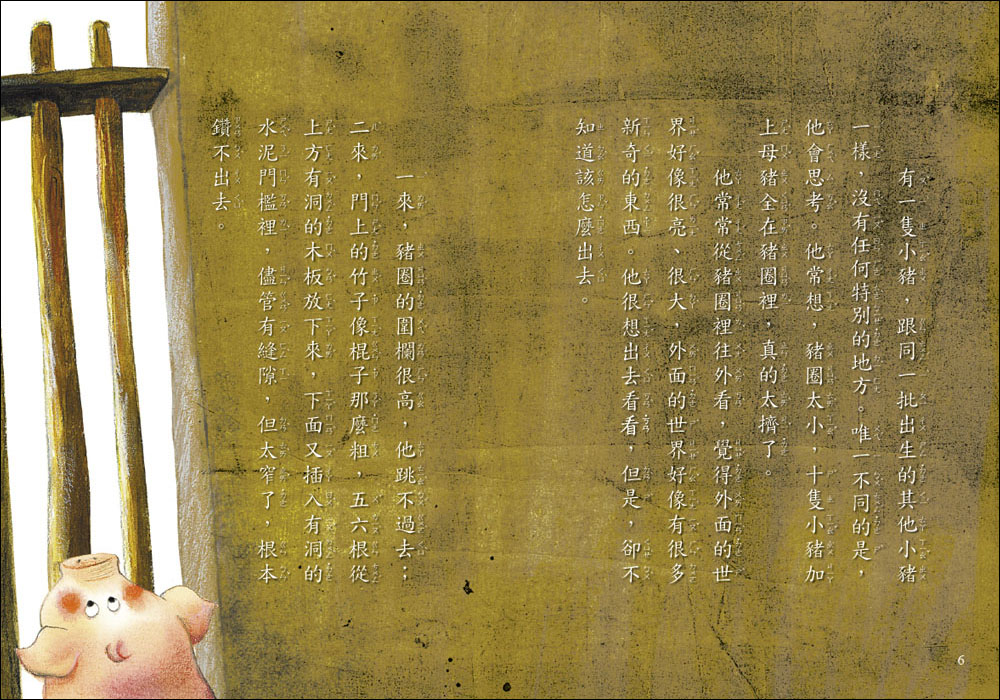 有一隻小豬，跟同一批出生的其他小豬
一樣，沒有任何特別的地方。唯一不同的是，
他會思考。他常想，豬圈太小，十隻小豬加
上母豬全在豬圈裡，真的太擠了。
他常常從豬圈裡往外看，覺得外面的世
界好像很亮、很大，外面的世界好像有很多
新奇的東西。他很想出去看看，但是，卻不
知道該怎麼出去。
一來，豬圈的圍欄很高，他跳不過去；
二來，門上的竹子像棍子那麼粗，五六根從
上方有洞的木板放下來，下面又插入有洞的
水泥門檻裡，儘管有縫隙，但太窄了，根本
鑽不出去。
6